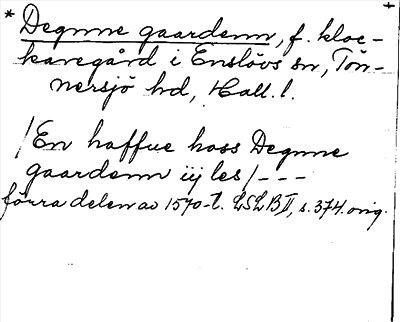 * Degnne gaardenn, f. kloc-
karegård i Enslövs sn, Tön-
nersjö hd, Hall. l.
/En haffue hoss Degnne
gaardenn iij les/ - - -
förra delen av 1570-t. LSLB II, s. 374. orig.